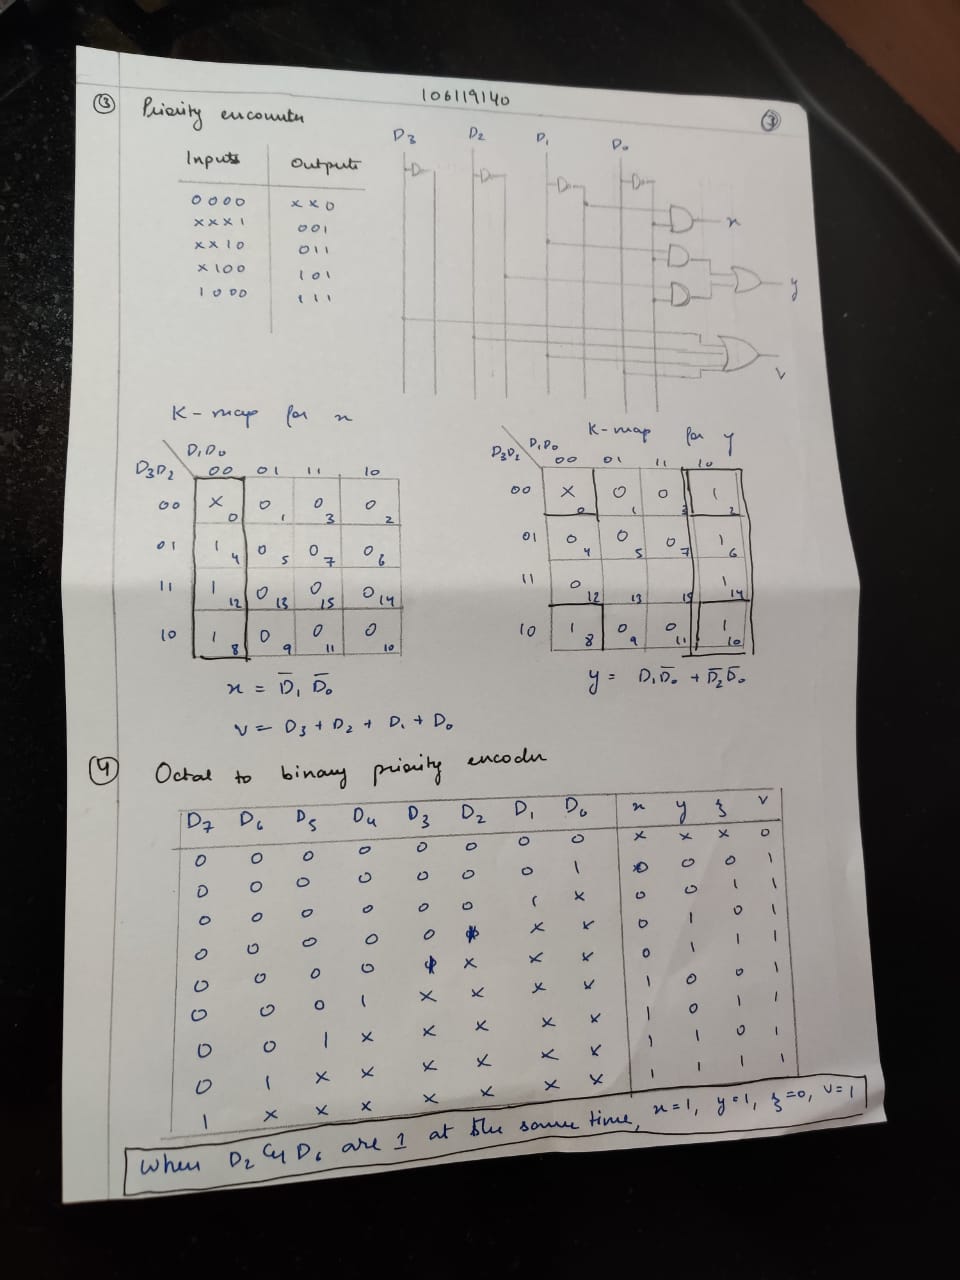 106119140
③ Priority encounter ③
Inputs Outputs
0000 x x 0
x x x 1 001
x x 1 0 011
x 100 101
1000 111
D3 D2 D1 D0
x
y
V
K-map for x
D1D0
D3D2 00 01 11 10
00 X 0 0 0 0 1 3 2
01 1 4 0 5 0 7 0 6
11 1 12 0 13 0 15 0 14
10 1 8 0 9 0 11 0 10
x = D̅1 D̅0
V = D3 + D2 + D1 + D0
K-map for y
D1D0
D3D2 00 01 11 10
00 X 0 0 1 0 3 1 2
01 0 4 0 5 0 7 1 6
11 0 12 13 15 1 14
10 1 8 0 9 0 11 1 10
y = D1D̅0 + D̅2D̅0
④ Octal to binary priority encoder
D7 D6 D5 D4 D3 D2 D1 D0 x y z V
0 0 0 0 0 0 0 0 x x x 0
0 0 0 0 0 0 0 1 0 0 0 1
0 0 0 0 0 0 1 x 0 0 1 1
0 0 0 0 0 1 x x 0 1 0 1
0 0 0 0 1 x x x 0 1 1 1
0 0 0 1 x x x x 1 0 0 1
0 0 1 x x x x x 1 0 1 1
0 1 x x x x x x 1 1 0 1
1 x x x x x x x 1 1 1 1
When D2 & D6 are 1 at the same time, x=1, y=1, z=0, V=1